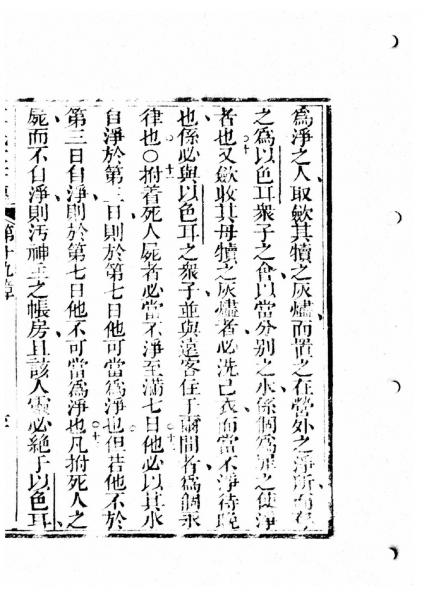 為淨之人取歛其犢之灰燼而置之在營外之淨所而存
之為以色耳衆子之會以當分別之水係個為罪之使淨
者也又歛收其母犢之灰燼者必洗己衣而當不淨待晚
也係必與以色耳之衆子並與遠客住于爾間者為個永
律也○拊着死人屍者必當不淨至滿七日他必以其水
自淨於第三日則於第七日他可當為淨也但若他不於
第三日自淨則於第七日他不可當為淨也凡拊死人之
屍而不自淨則污神主之帳房且該人靈必絕于以色耳
第十九章